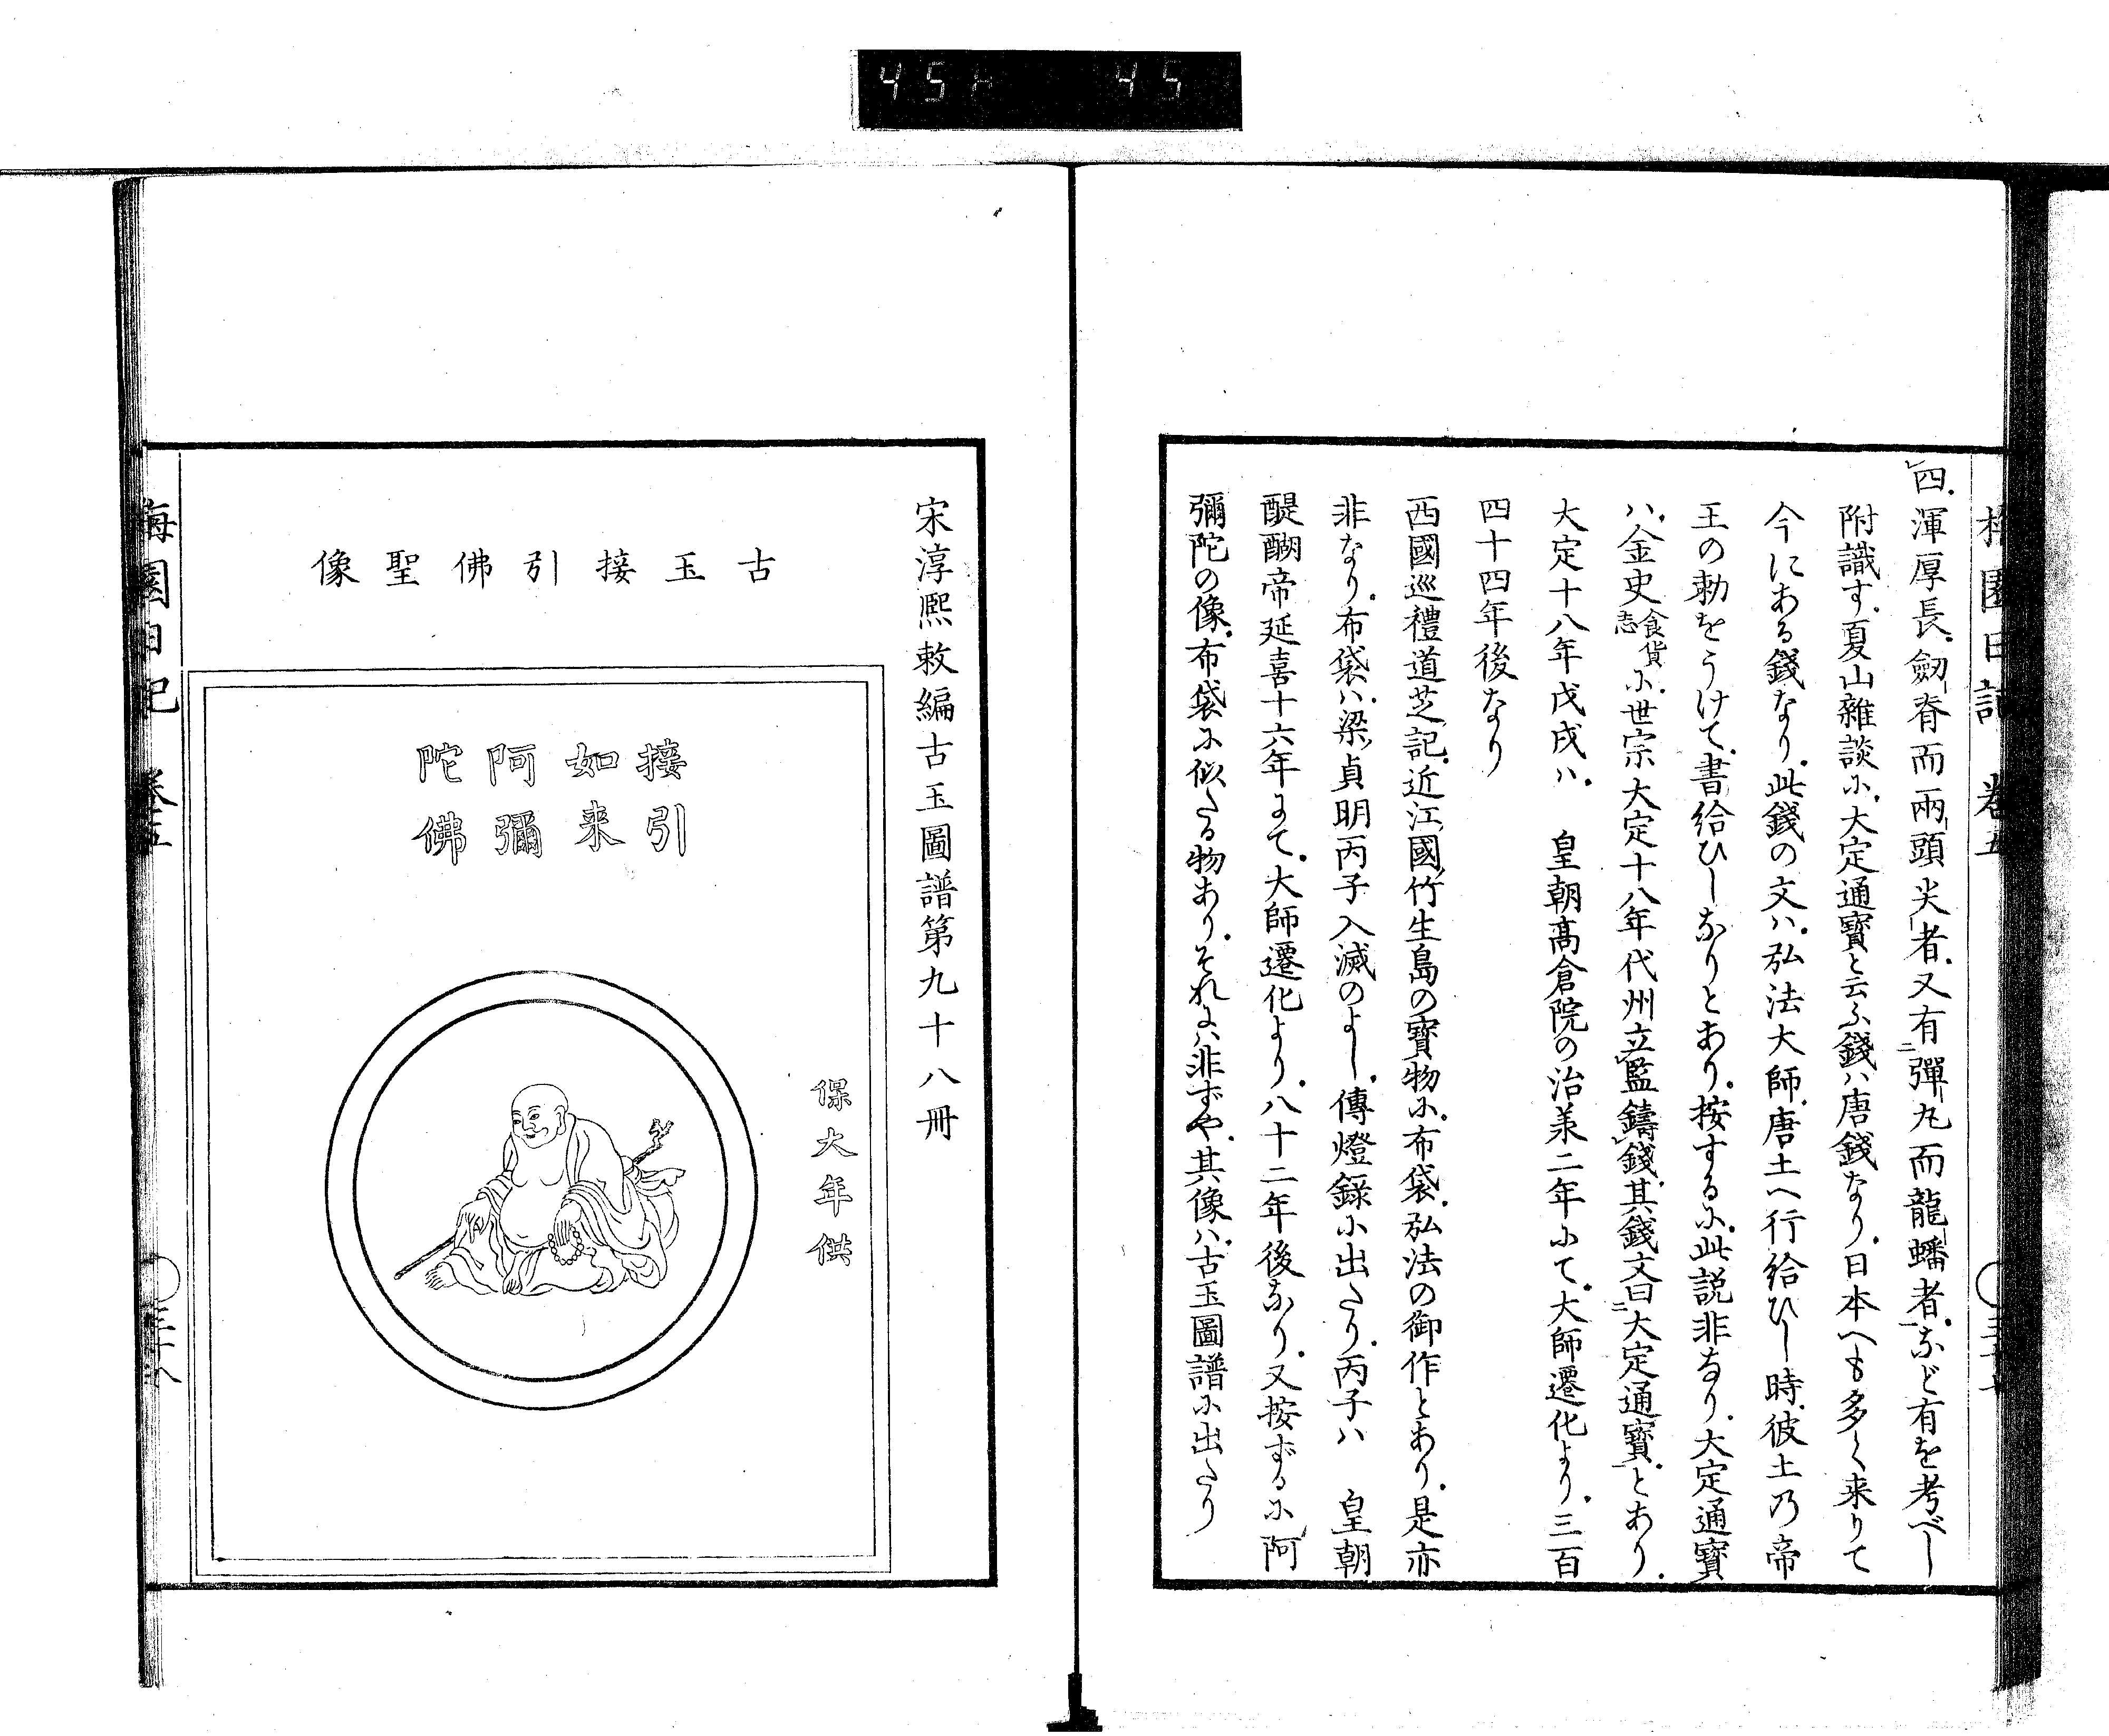 45 45
梅園日記 卷五
四渾厚長劒脊而兩頭尖者又有彈丸而龍蟠者など有を考べし
附識す夏山雜談に大定通寳と云ふ錢ハ唐錢なり日本へも多く来りて
今にある錢なり此錢の文ハ弘法大師唐土へ行給ひし時彼土乃帝
王の勅をうけて書給ひしなりとあり按するに此説非なり大定通寳
ハ金史食貨志に世宗大定十八年代州立監鑄錢其錢文曰大定通寳とあり
大定十八年戊戌ハ 皇朝髙倉院の治承二年にて大師遷化より三百
四十四年後なり
西國巡禮道芝記近江國竹生島の寳物に布袋弘法の御作とあり是亦
非なり布袋ハ梁貞明丙子入滅のよし傳燈錄に出たり丙子ハ 皇朝
醍醐帝延喜十六年にて大師遷化より八十二年後なり又按ずるに阿
彌陀の像布袋に似たる物ありそれにハ非ずや其像ハ古玉圖譜に出たり
宋淳熙敕編古玉圖譜第九十八冊
古玉接引佛聖像
接引
如来
阿彌
陀佛
保大年供
梅園日記 卷五
三十八